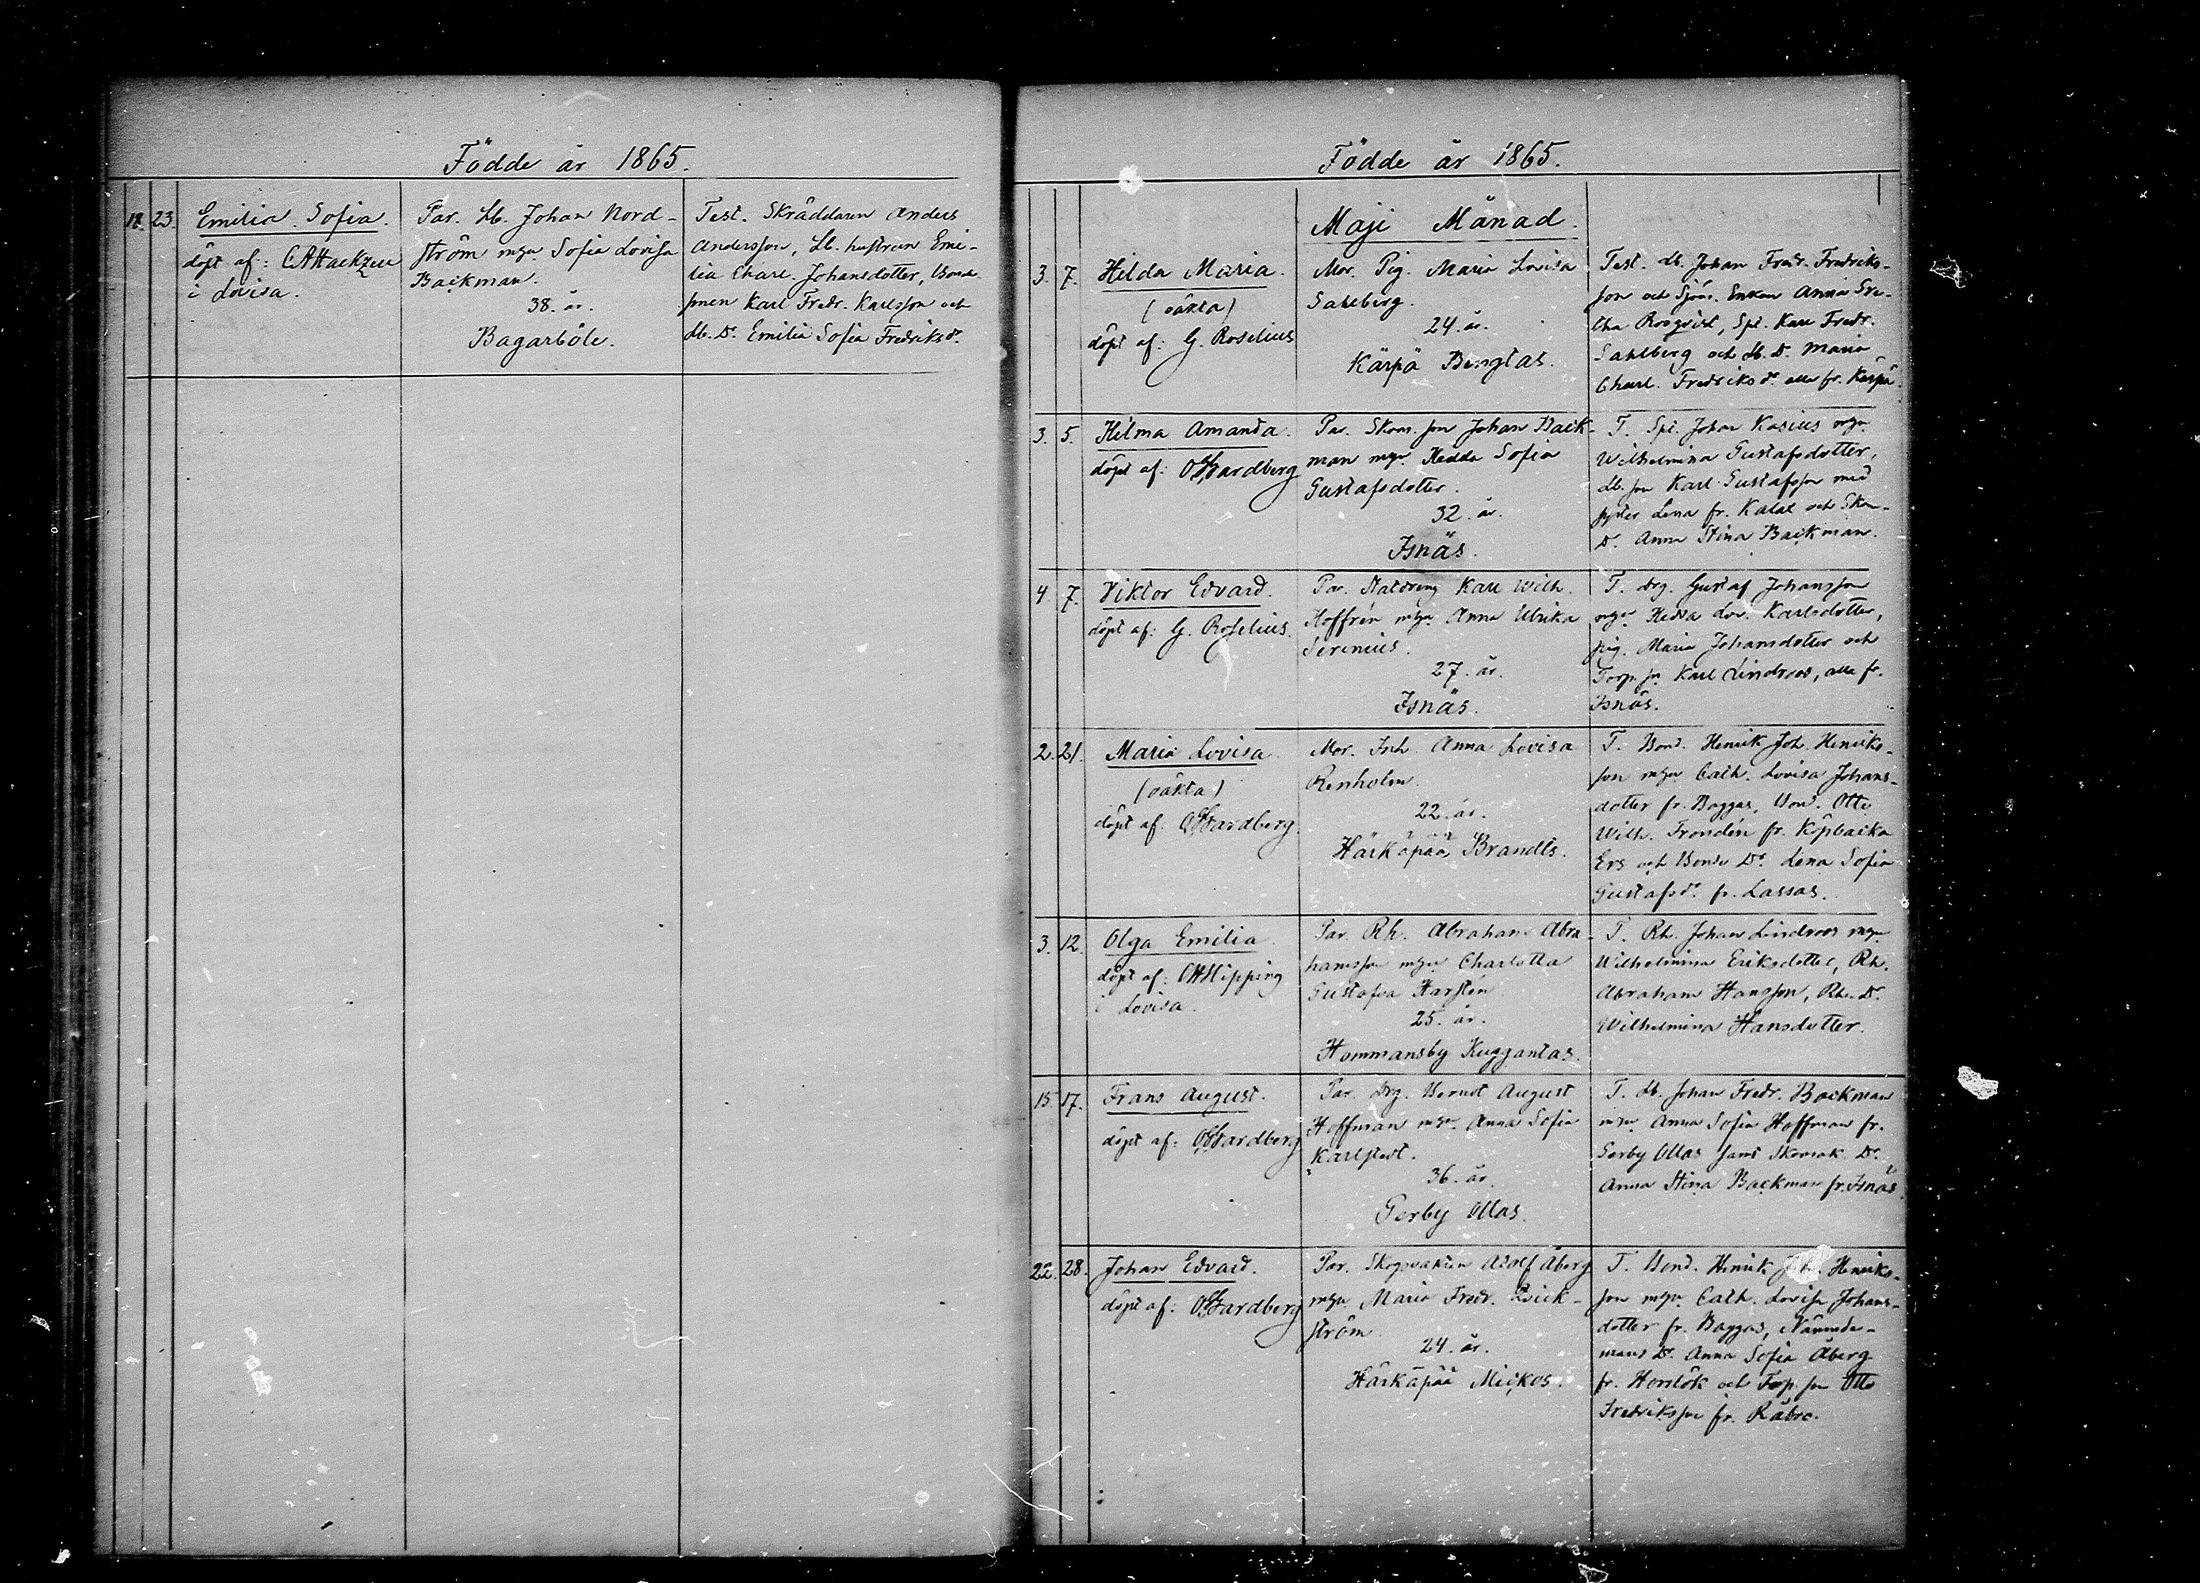 Födde år 1865.
12. 23. Emilia Sofia.
döpt af:
i Lovisa.
Par. Lb. Johan Nord-
ström mgn Sofia Lovisa
Backman.
38. år.
Bagarböle.
Test. Skräddaren Anders
Andersson, Lb. hustrun Emi-
lia Charl. Johansdotter, Bonde
sonen Karl Fredr. Karlsson och
Lb. Dr. Emilia Sofia Fredriksdr.
Födde år 1865.
Maji Månad.
3. 7. Hilda Maria.
(oäkta)
döpt af: G. Roselius
Mor. Pig. Maria Lovisa
Sahlberg.
24. år.
Kärpä Bengtas.
Test. Lb. Johan Fredr. Fredriks-
son och Sjöm. Enkan Anna Gre-
tha Rosqvist, Spl. Karl Fredr.
Sahlberg och Lb. Dr. Maria
Charl. Fredriksdr. alla fr. Kärpä.
3. 5. Hilma Amanda.
döpt af: Gardberg
Par. Skom. son Johan Back-
man mgn Hedda Sofia
Gustafsdotter.
32. år.
Isnäs.
T. Spl. Johan Kasius mgn
Wilhelmina Gustafsdotter,
Lb. son Karl Gustafsson med
syster Lena fr. Kalax och Skom.
Dr. Anna Stina Backman.
4 7. Viktor Edvard.
döpt af: G. Roselius.
Par. Statdreng Karl Wilh.
Hoffrén mgn Anna Ulrika
Serenius.
27. år.
Isnäs.
T. drg. Gustaf Johansson
mgn Hedda Lov. Karlsdotter,
pig. Maria Johansdotter och
Torp. sn Karl Lindroos, alla fr.
Isnäs.
2. 21. Maria Lovisa.
(oäkta)
döpt af: Gardberg.
Mor. Inh. Anna Lovisa
Renholm.
22. år.
Härkäpää Brandts.
T. Bond. Henrik Joh. Henriks-
son mgn Cath. Lovisa Johans-
dotter fr. Baggas, Bond. Otto
Wilh. Frondén fr. Köpbacka
Ers och Bonde Dr. Lena Sofia
Gustafsdr. fr. Lassas.
3. 12. Olga Emilia
döpt af: Hipping
i Lovisa.
Par. Rh. Abraham Abra-
hamsson mgn Charlotta
Gustafva Karstén
25. år.
Hommansby Kuggantas.
T. Rh. Johan Lindroos mgn
Wilhelmina Eriksdotter, Rh.
Abraham Hansson, Rh. Dr.
Wilhelmina Hansdotter.
15. 17. Frans August.
döpt af: Gardberg
Par. Drg. Berndt August
Hoffman mgn Anna Sofia
Karlstedt.
36. år.
Gerby Ollas.
T. Lb. Johan Fredr. Backman
mgn Anna Sofia Hoffman fr.
Gerby Ollas samt Skomak. Dr.
Anna Stina Backman fr. Isnäs.
22. 28. Johan Edvard.
döpt af: Gardberg
Par. Skogsvakten Adolf Åberg
mgn Maria Fredr.
ström.
24. år.
Härkäpää Mickos.
T. Bond. Henrik Joh. Henriks-
son mgn Cath. Lovisa Johans-
dotter fr. Baggas, Nämnde-
mans Dr. Anna Sofia Åberg
fr. Horslök och Torp. sn Otto
Fredriksson fr. Råbro.